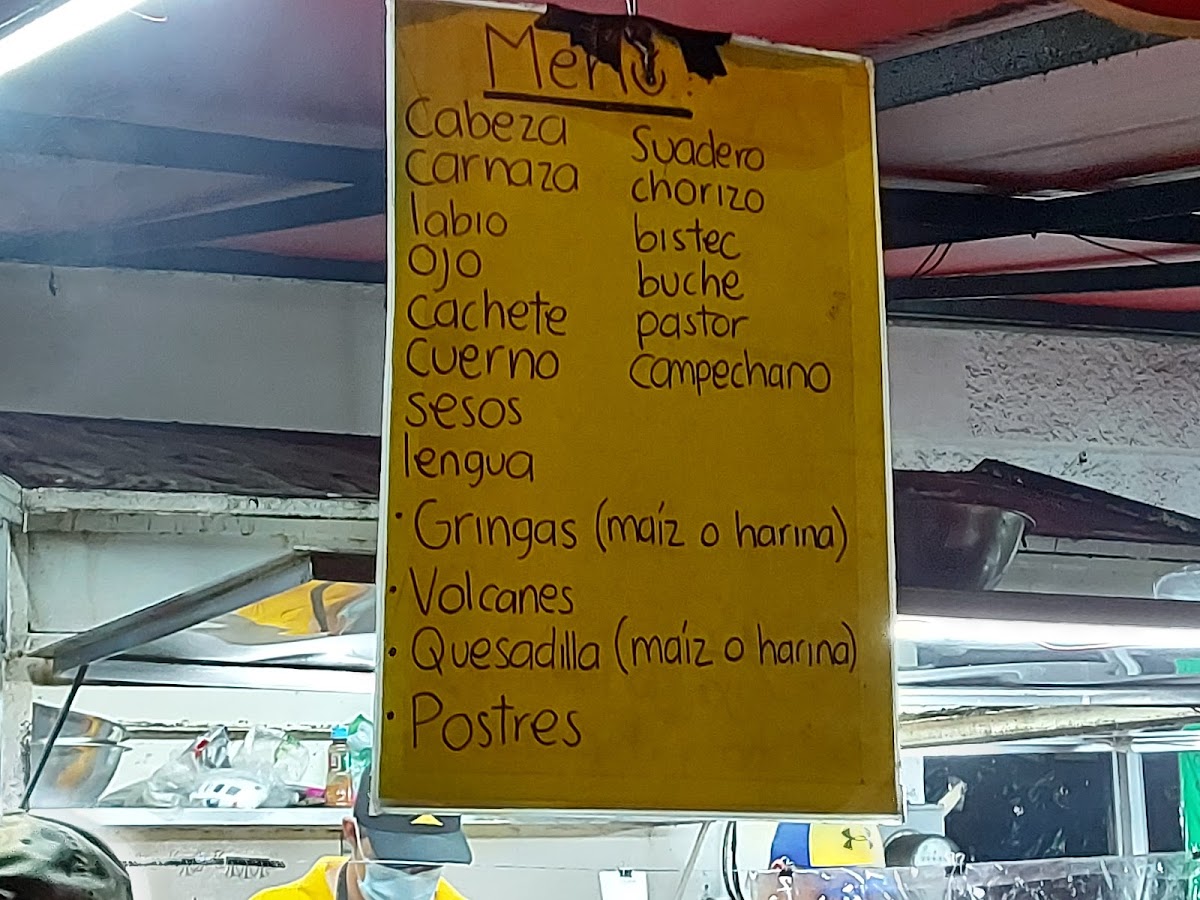 Menú:
Cabeza
Carnaza
labio
Ojo
Cachete
Cuerno
Sesos
lengua
Suadero
chorizo
bistec
buche
pastor
Campechano
· Gringas (maíz o harina)
· Volcanes
· Quesadilla (maíz o harina)
· Postres